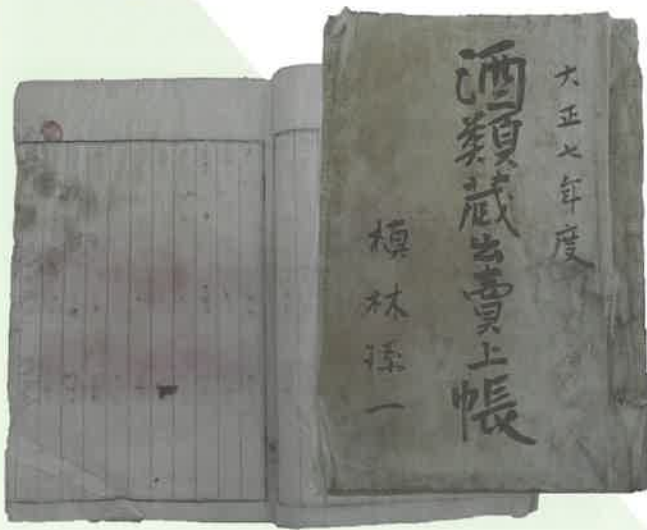 大正七年度
酒類蔵出賣上帳
槙林孫一